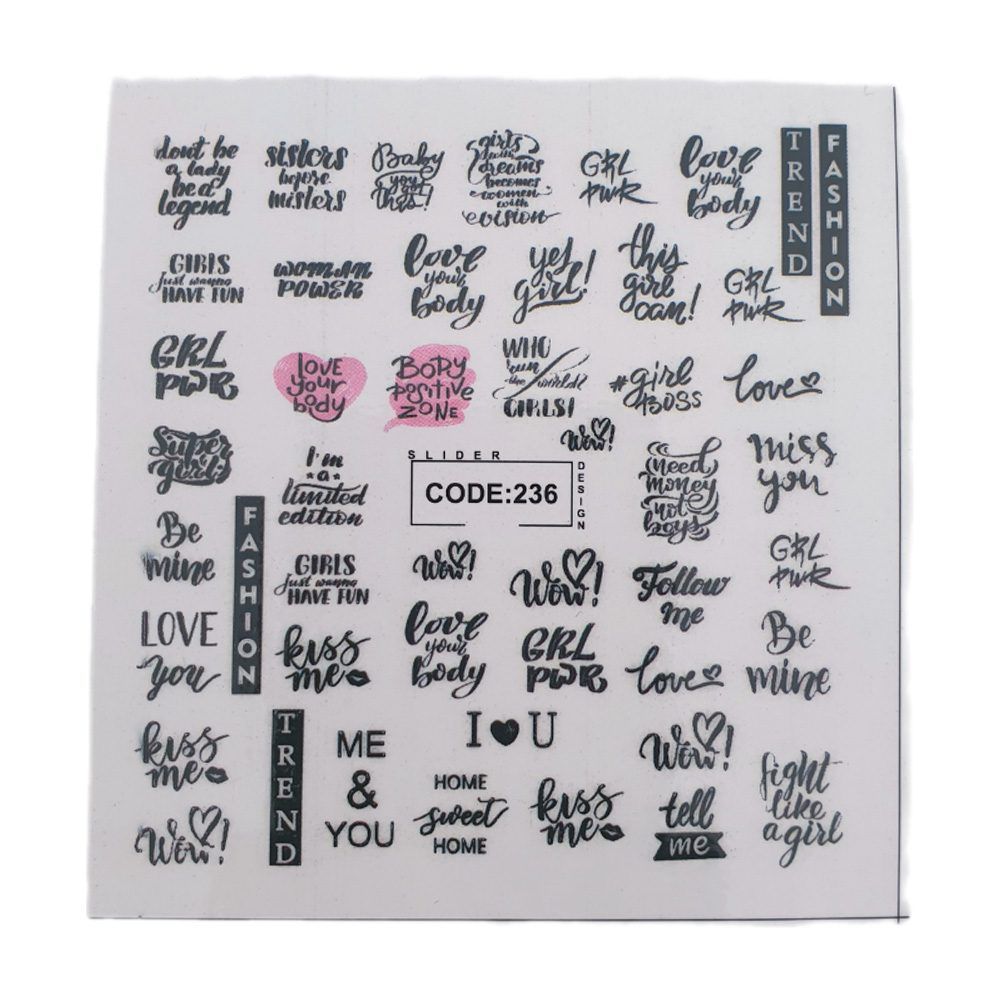 dont be
a lady
be a
legend
sisters
before
misters
Baby
you got
this!
girls
with
dreams
becomes
women
with
vision
GRL
PWR
love
your
body
TREND
FASHION
GIRLS
just wanna
HAVE FUN
WOMAN
POWER
love
your
body
yes
girl!
this
girl
can!
GRL
PWR
GRL
PWR
LOVE
your
body
BODY
positive
ZONE
WHO
run
the world?
GIRLS!
#girl
BOSS
love
Super
girls
I'm
a
limited
edition
SLIDER
CODE:236
DESIGN
Wow!
I need
money
not
boys
miss
you
Be
mine
FASHION
GIRLS
just wanna
HAVE FUN
Wow!
Wow!
Follow
me
GRL
PWR
LOVE
you
kiss
me
love
your
body
GRL
PWR
love
Be
mine
kiss
me
TREND
ME
&
YOU
I U
Wow!
fight
like
a girl
Wow!
HOME
sweet
HOME
kiss
me
tell
me